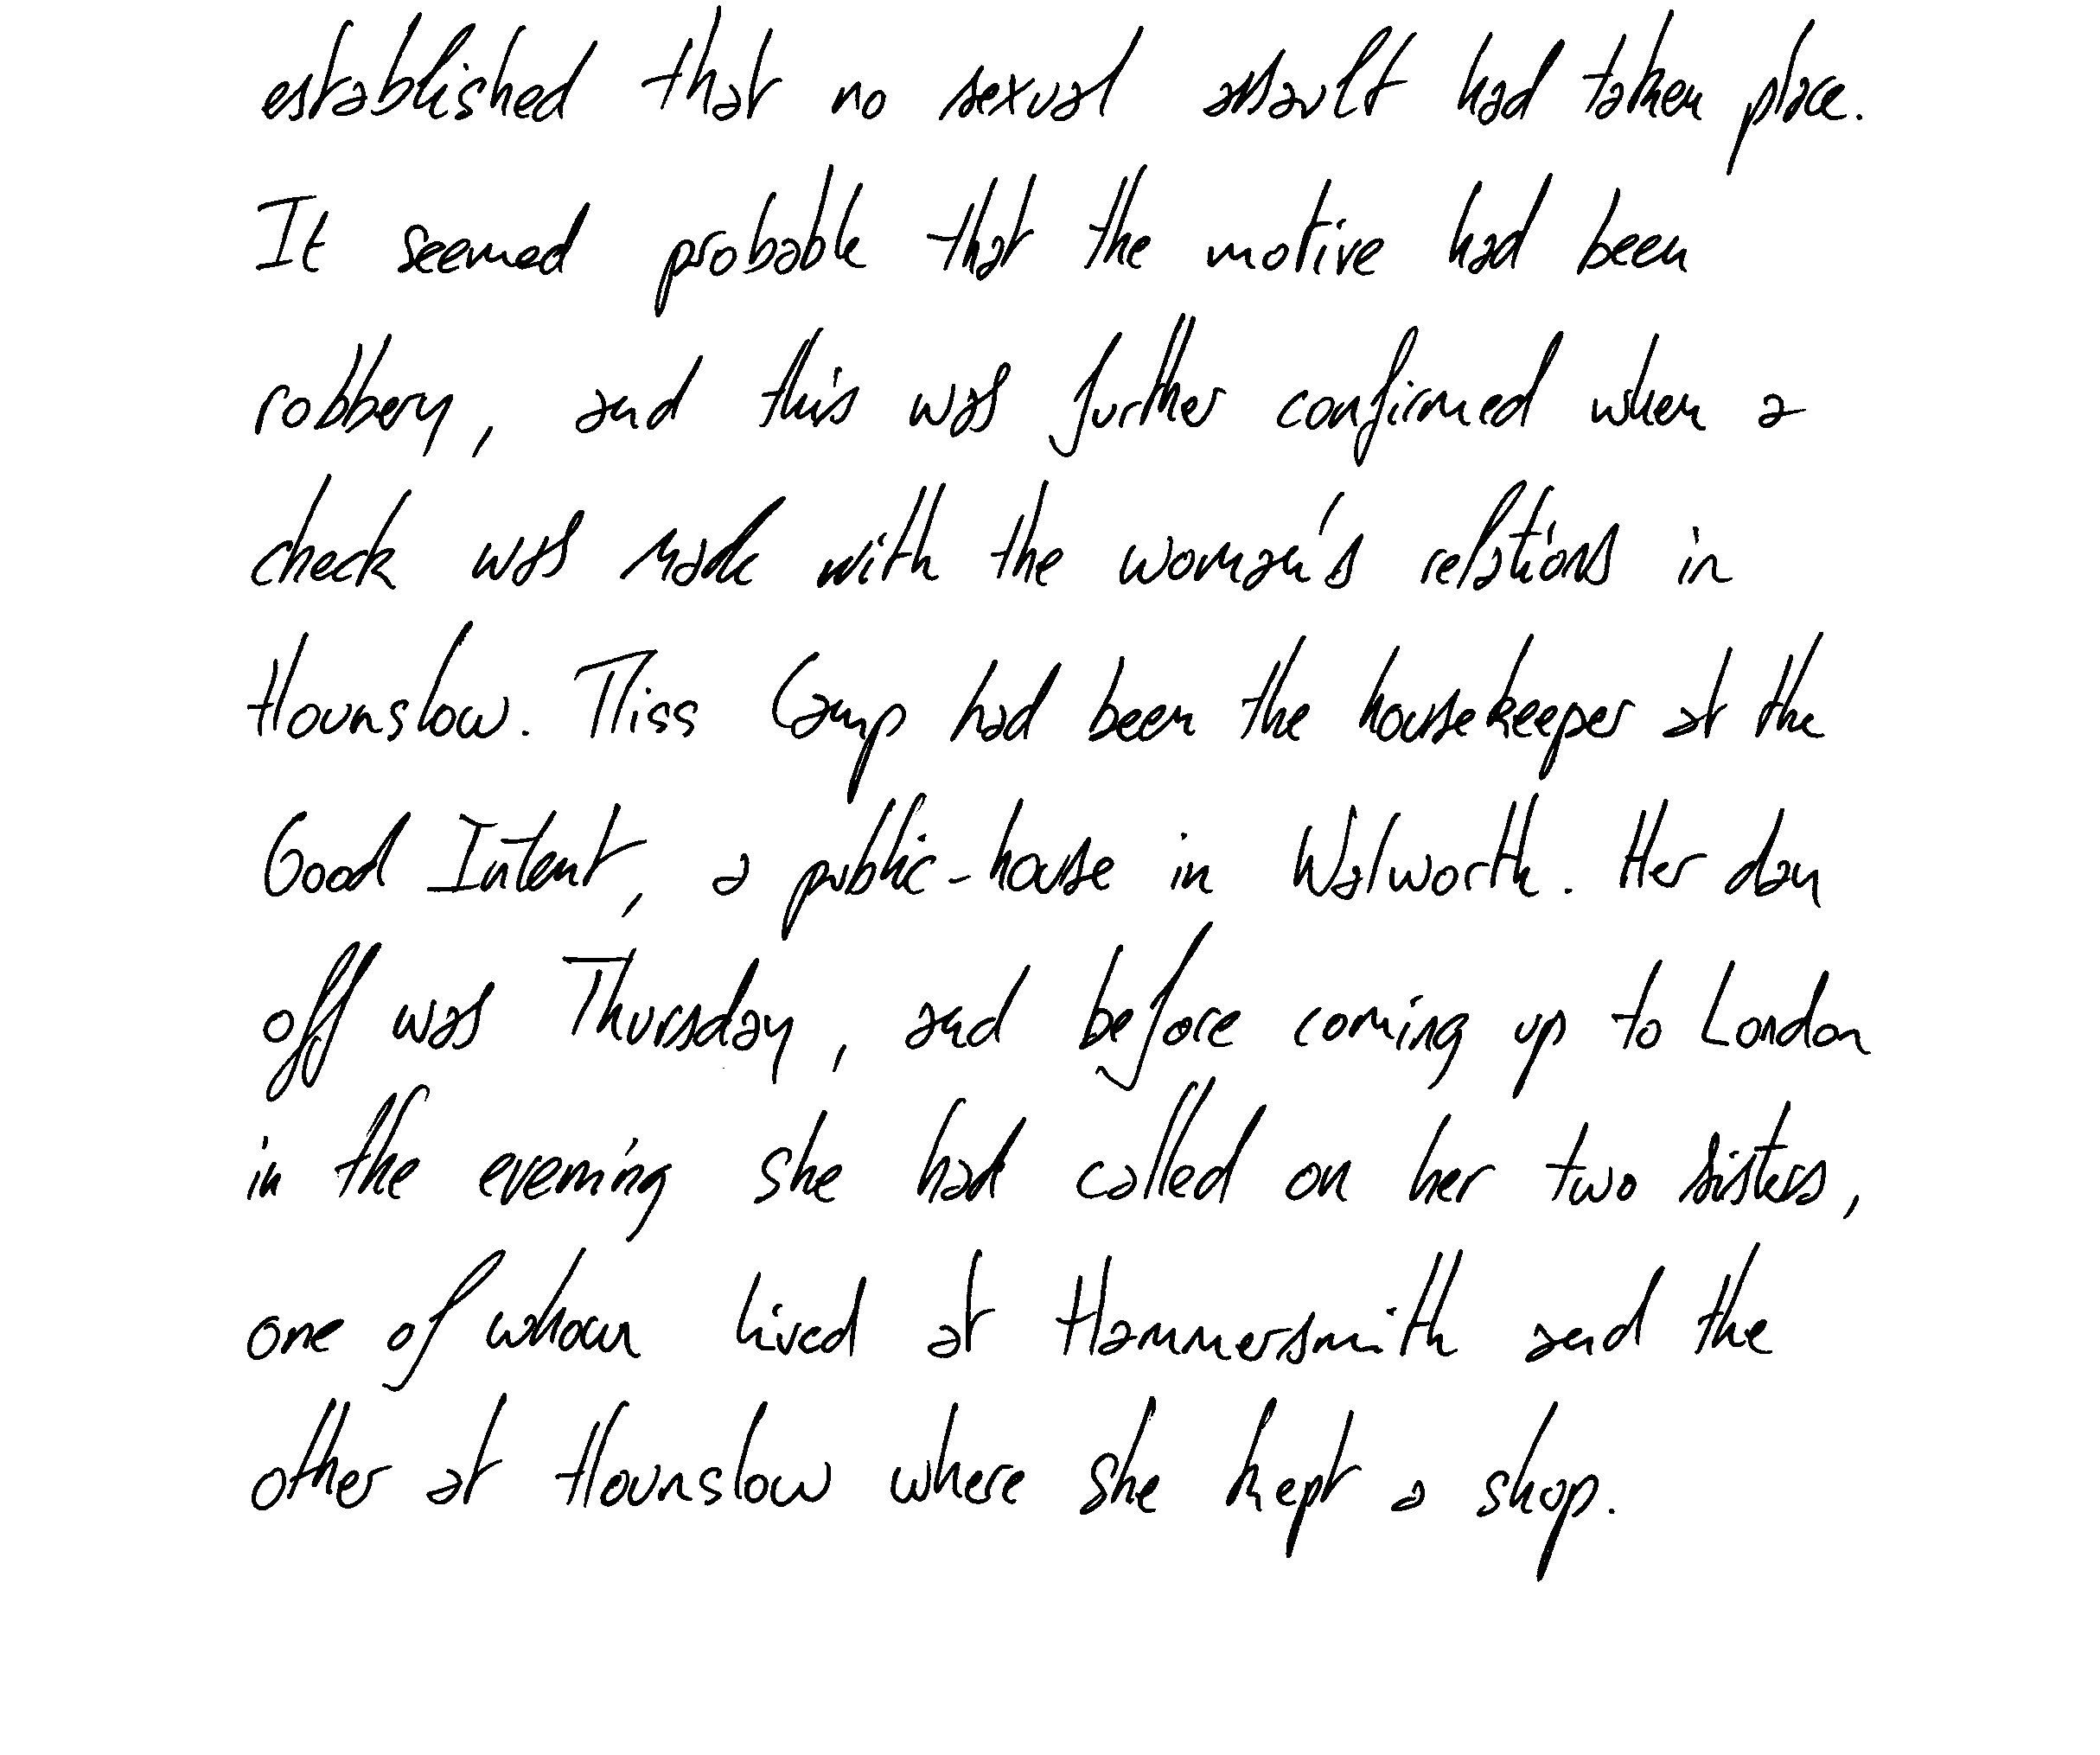 established that no sexual assault had taken place.
It seemed probable that the motive had been
robbery, and this was further confirmed when a
check was made with the woman's relations in
Hounslow. Miss Camp had been the housekeeper at the
Good Intent, a public-house in Walworth. Her day
off was Thursday, and before coming up to London
in the evening she had called on her two sisters,
one of whom lived at Hammersmith and the
other at Hounslow where she kept a shop.